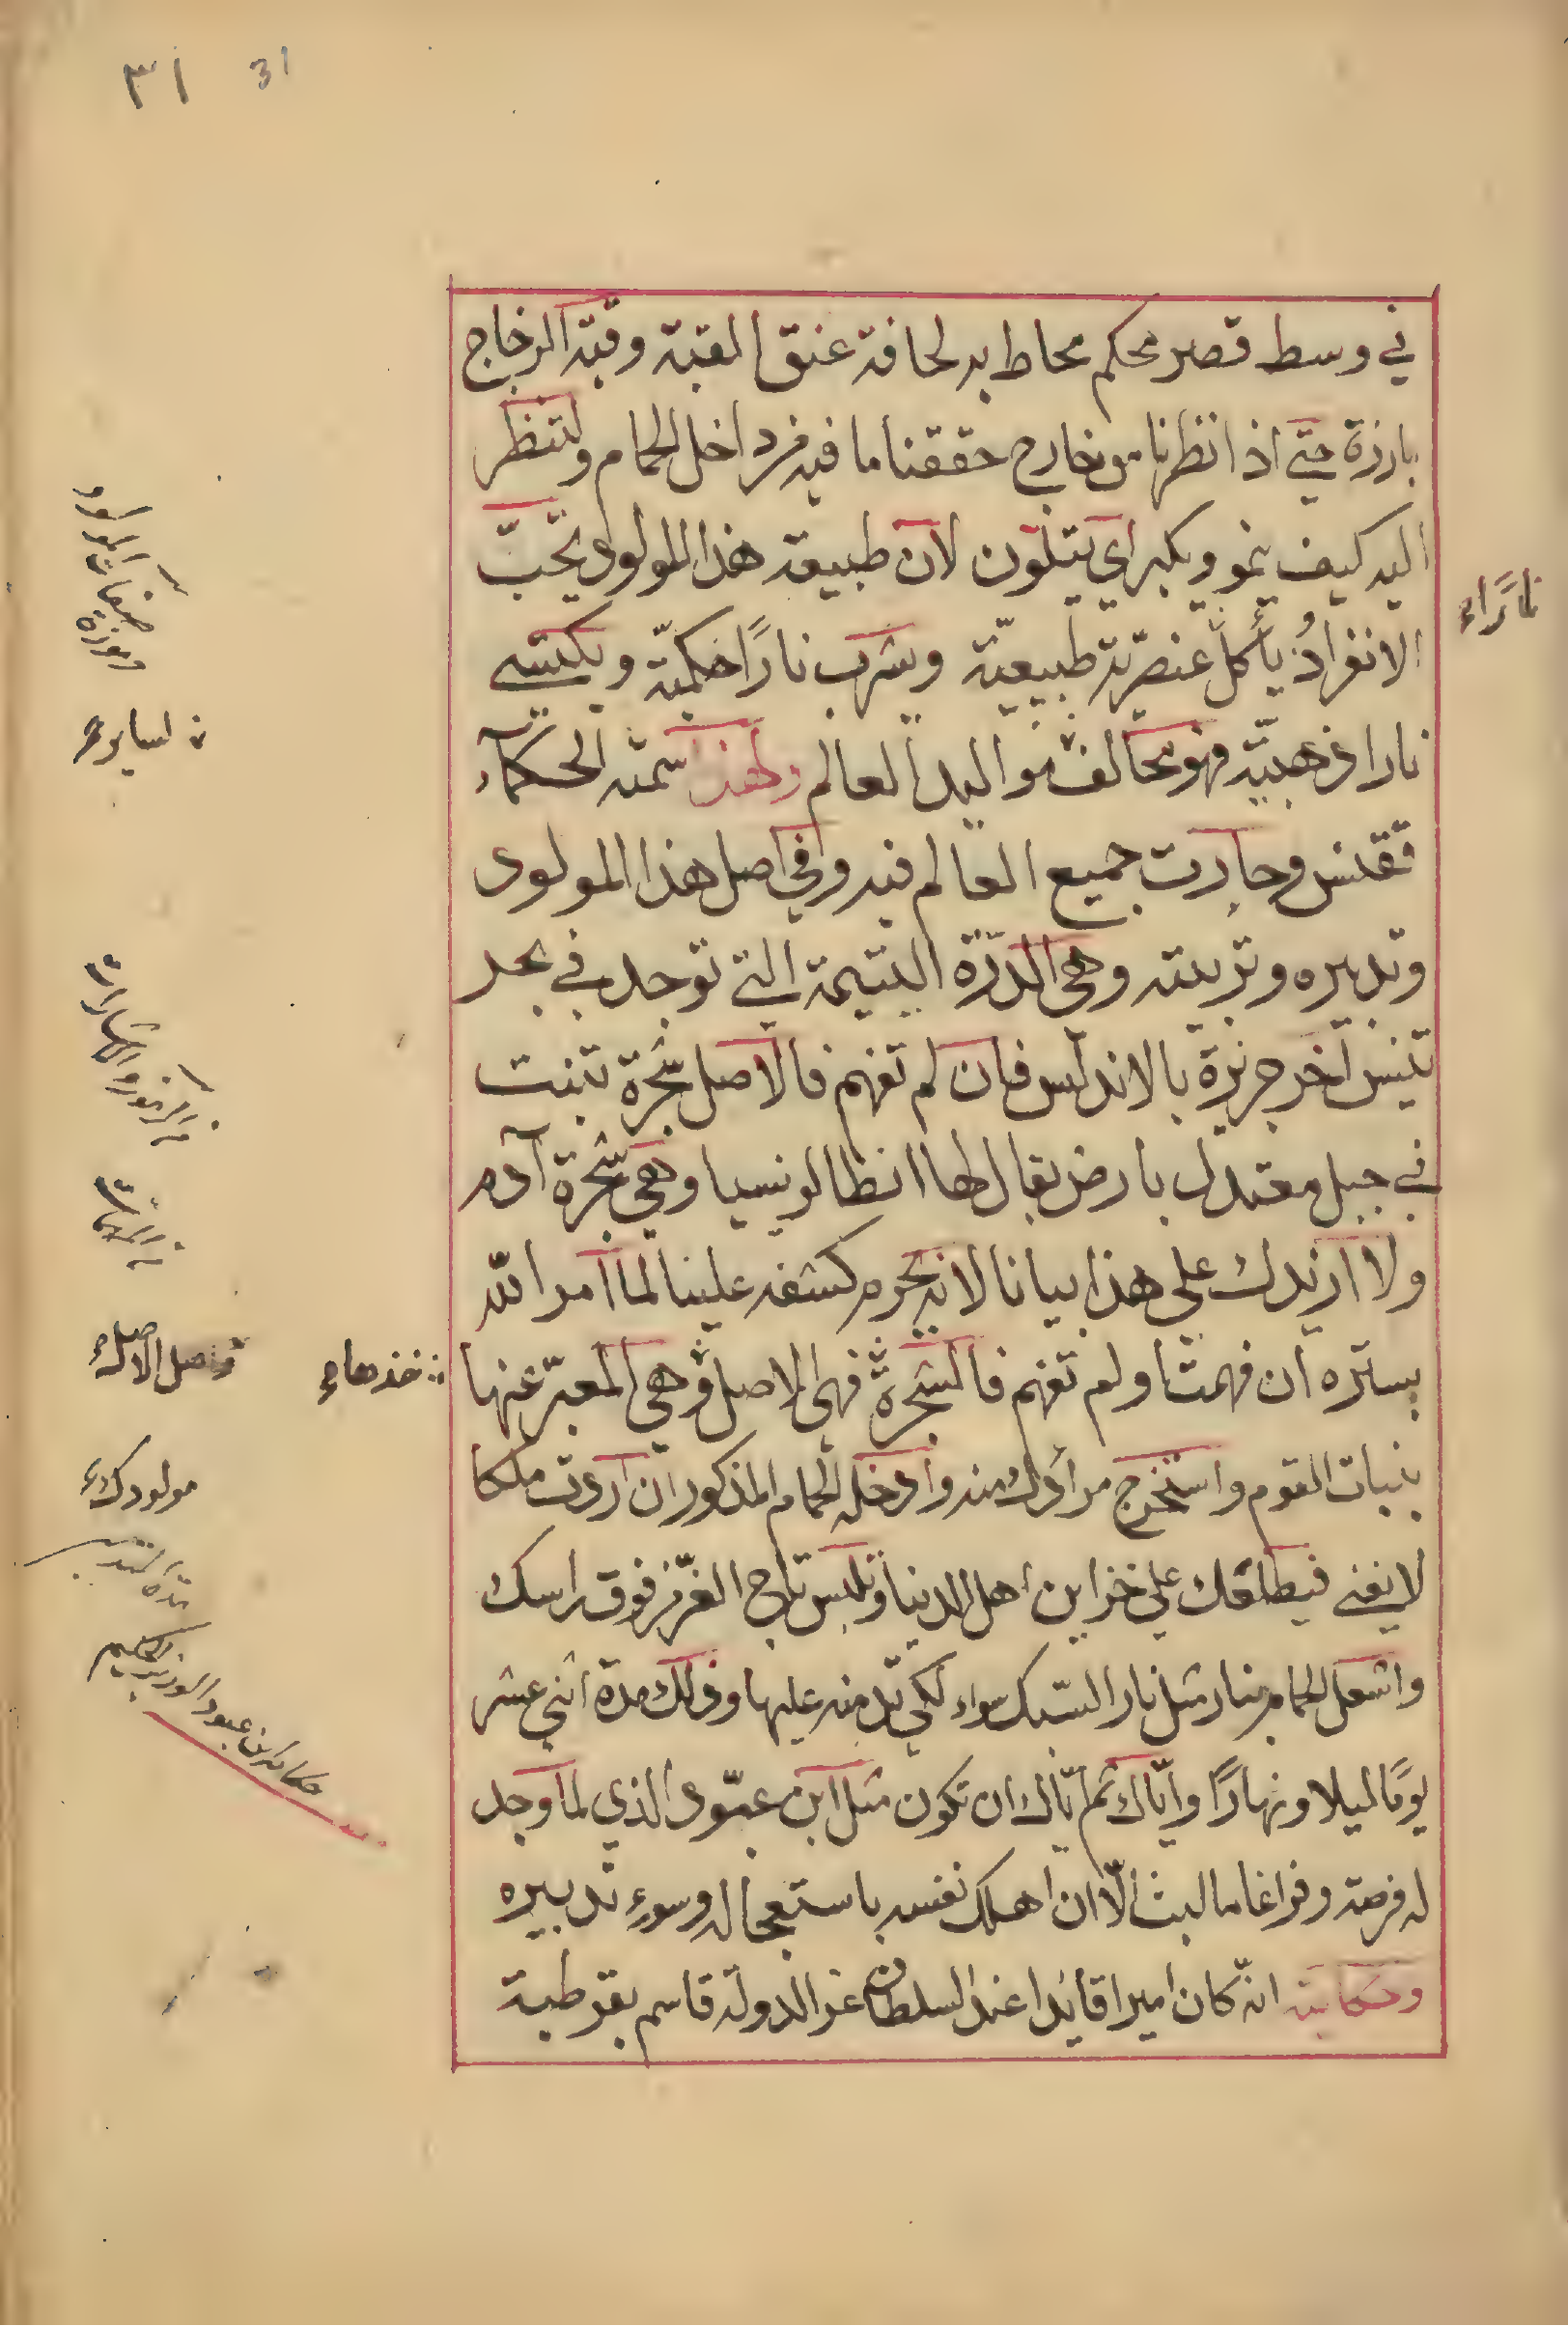 ٣١ 31
في وسط قصر محكم محاط به لحافة عنق القبة وقبة الزجاج
بارزة حتى اذا نظرنا من خارج حققنا ما فيه من داخل الحمام ولننظر
اليه كيف ينمو ويكبر اي يتلون لان طبيعة هذا المولود تحب
الانفراد يأكل عنصرية طبيعية ويشرب نارًا حكمية ويكتسي
نارا ذهبية فهو مخالف مواليد العالم ولهذا سمته الحكماء
ققنس وحارت جميع العالم فيه وفي اصل هذا المولود
وتدبيره وتربيته وهي الدرّة اليتيمة التي توجد في بحر
تنيس آخر جزيرة بالاندلس فان لم تفهم فالاصل شجرة تنبت
في جبل معتدل بارض يقال لها انطالونسيا وهي شجرة آدم
ولا ازيدك على هذا بيانا لانه يحرم كشفه علينا لما امر الله
بستره ان فهمت او لم تفهم فالشجرة فهي الاصل وهي المعبّر عنها
بنبات القوم واستخرج مرادك منه وادخله الحمام المذكور ان اردت ملكا
لا يفنى فيطلعك على خزاين اهل الدنيا وتلبس تاج العز فوق راسك
واشعل الحمام بنار مثل نار السبك سواء لكي تدمنه عليها وذلك مدة اثني عشر
يومًا ليلا ونهارًا وايّاك ثم ايّاك ان تكون مثل ابن عبّود الذي لما وجد
له فرصة وفراغا ما لبث الّا ان اهلك نفسه باستعجاله وسوء تدبيره
وحكايته انّه كان اميرا قايدا عند السلطان عز الدولة قاسم بقرطبة
نارًا
خذها
مولودك
حكاية ابن عبود الوزير الحكيم